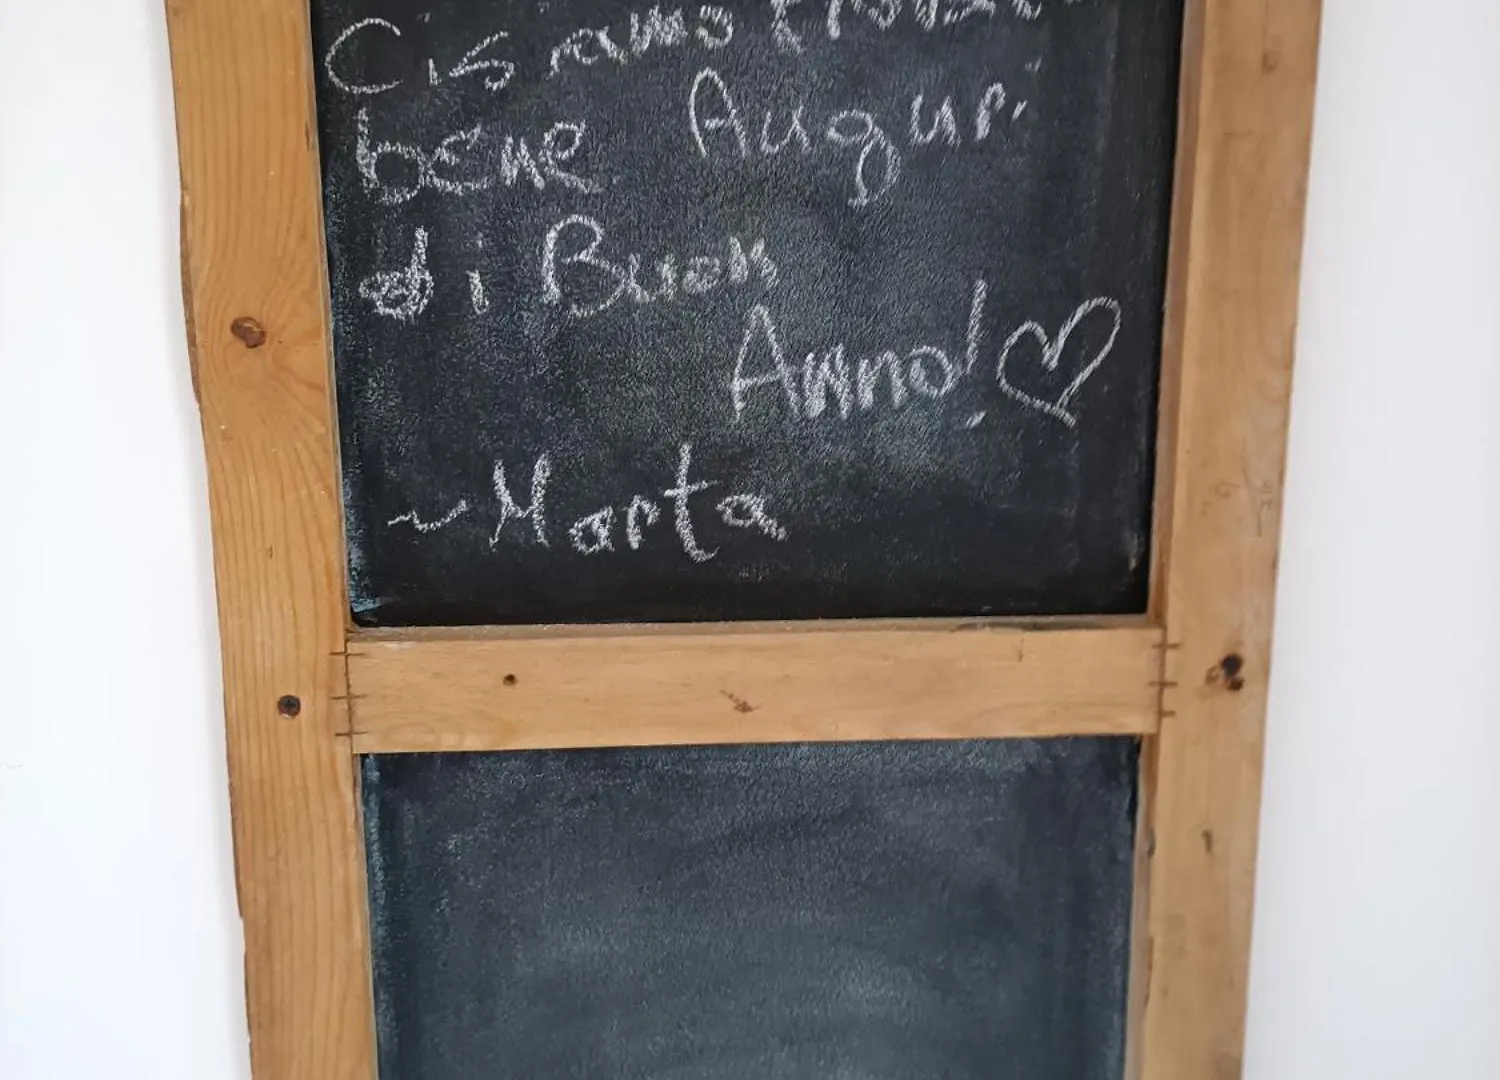 Ci siamo trovati
bene Auguri
di Buon
Anno!
~ Marta